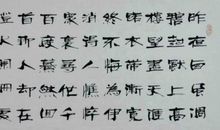 昨夜西風凋
碧樹獨上高
樓望盡天涯
路衣帶漸寬
終不悔為伊
消得人憔悴
眾裏尋他千
百度驀然回
首那人卻在